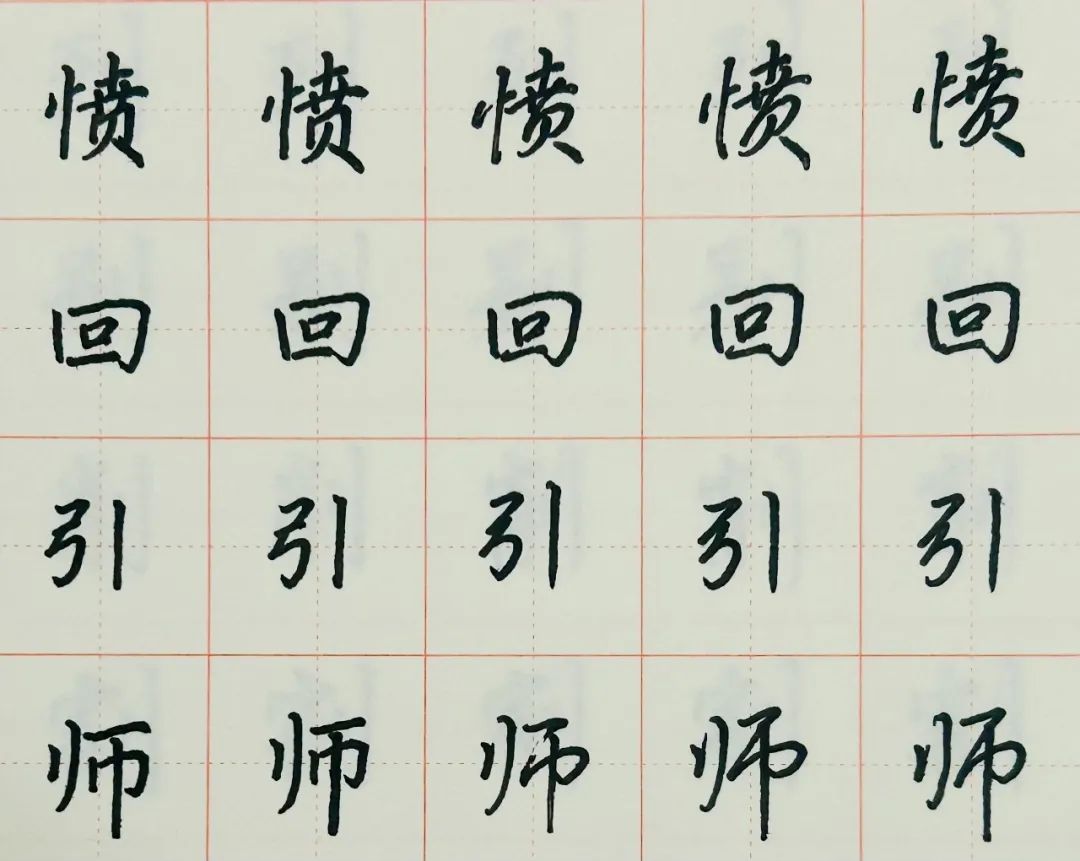 愤愤愤愤愤
回回回回回
引引引引引
师师师师师